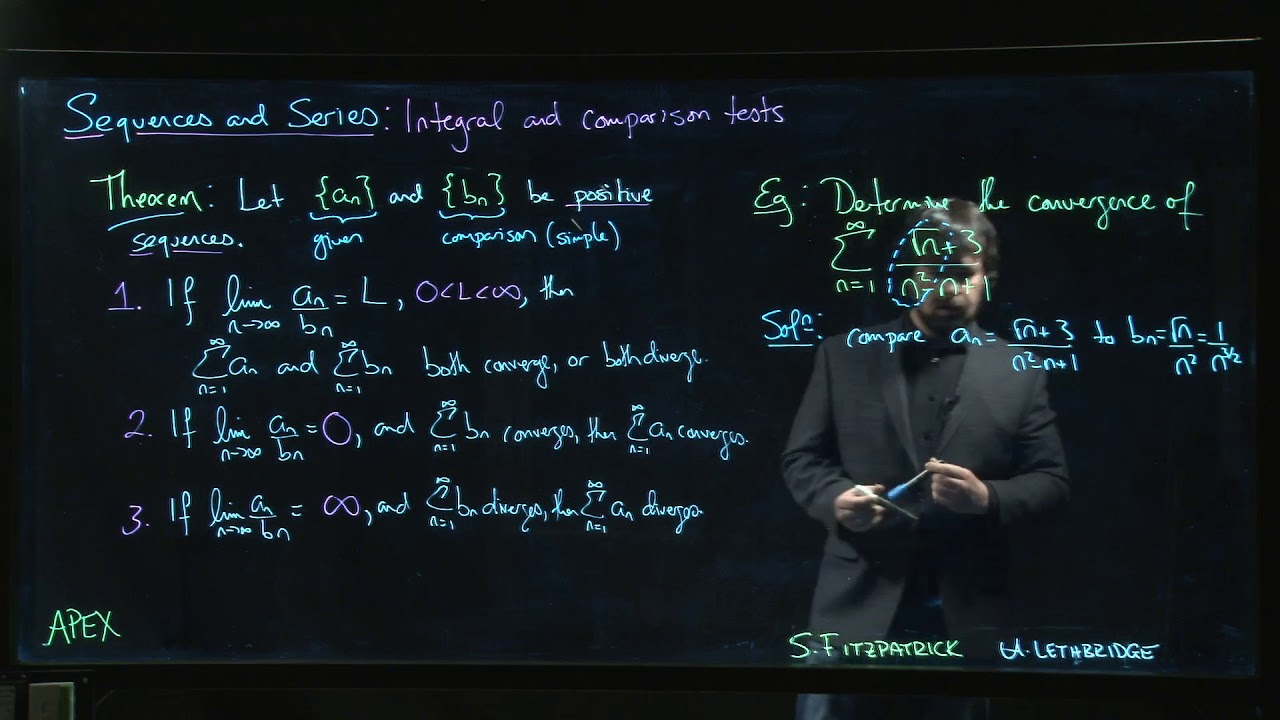 Sequences and Series: Integral and comparison tests
Theorem: Let {aₙ} and {bₙ} be positive
sequences. given comparison (simple)
1. If lim n→∞ aₙ/bₙ = L, 0<L<∞, then
∞∑n=1 aₙ and ∞∑n=1 bₙ both converge, or both diverge.
2. If lim n→∞ aₙ/bₙ = 0, and ∞∑n=1 bₙ converges, then ∞∑n=1 aₙ converges.
3. If lim n→∞ aₙ/bₙ = ∞, and ∞∑n=1 bₙ diverges, then ∞∑n=1 aₙ diverges.
Eg: Determine the convergence of
∞∑n=1 (√n+3)/(n²-n+1)
Solⁿ: compare aₙ = (√n+3)/(n²-n+1) to bₙ = √n/n² = 1/n^(3/2)
APEX
S. FITZPATRICK U. LETHBRIDGE